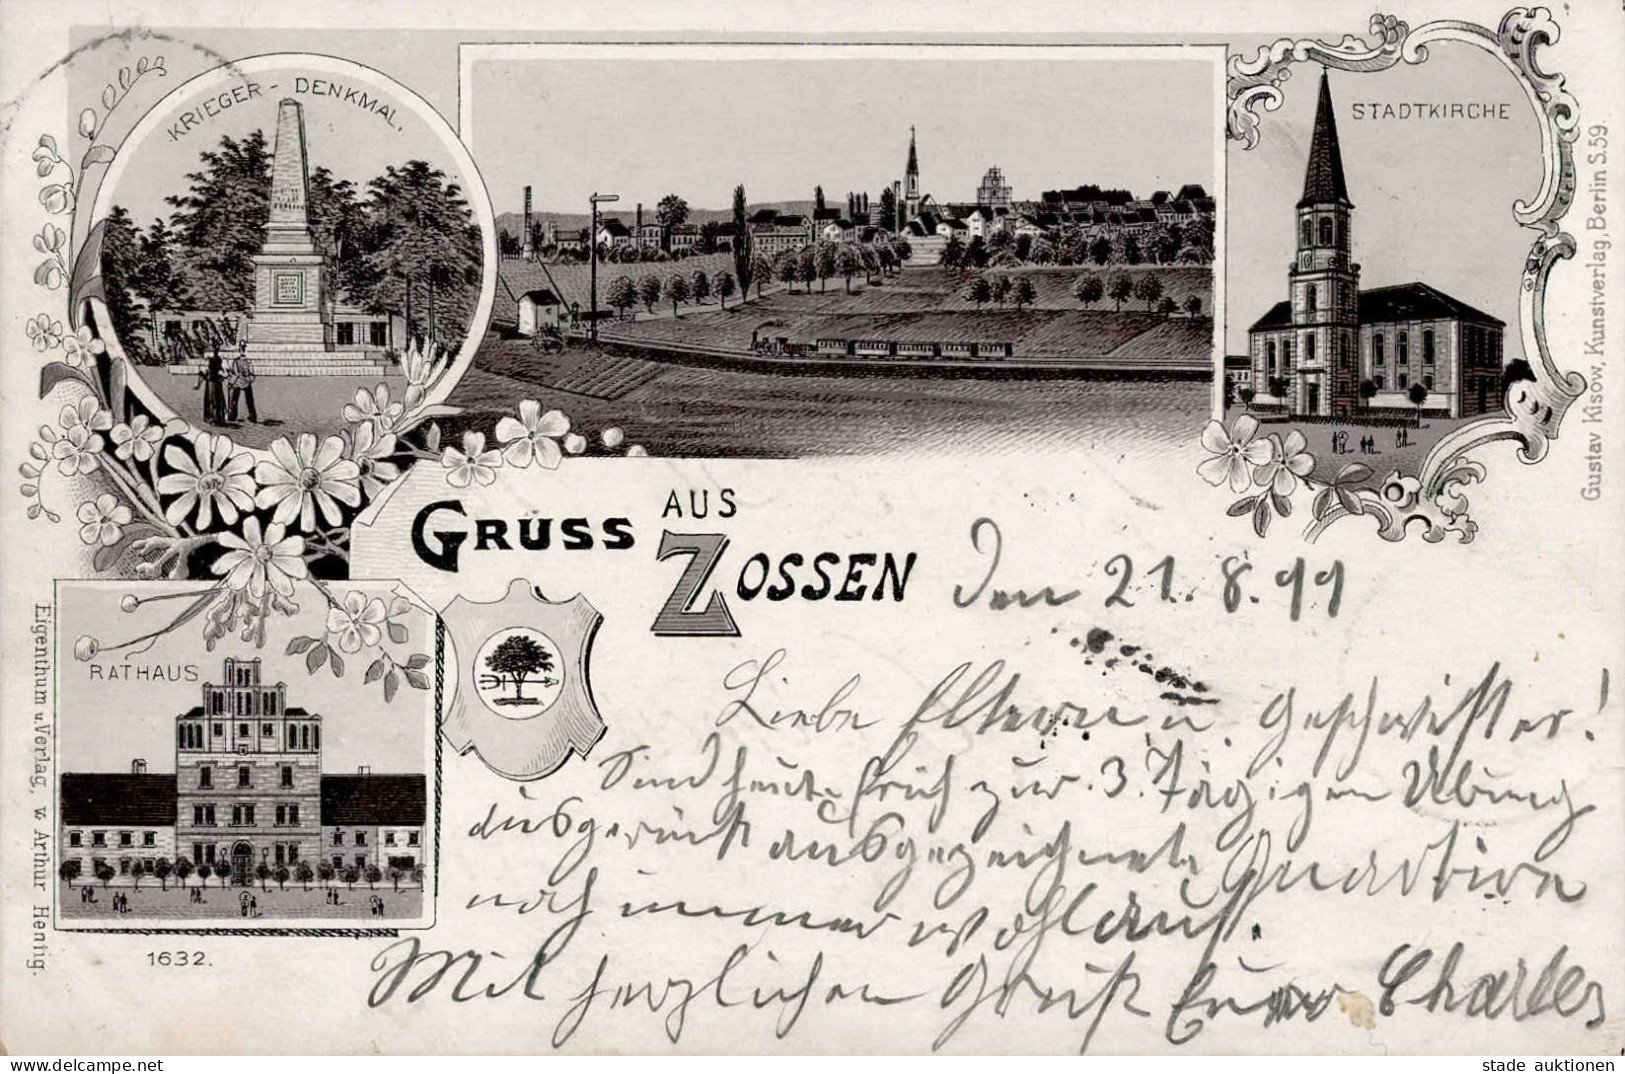 KRIEGER - DENKMAL.
STADTKIRCHE
Gustav Kisow, Kunstverlag, Berlin S.59.
GRUSS AUS ZOSSEN
Den 21.8.99
RATHAUS
Liebe Eltern u. Geschwister!
Sind heute früh zur 3. Tägigen Übung
ausgerückt ausgezeichnete Quartire
noch immer wohlauf.
Mit herzlichen Gruß Euer Charles
1632.
Eigenthum u. Verlag, v. Arthur Hennig.
delcampe.net
stade auktionen